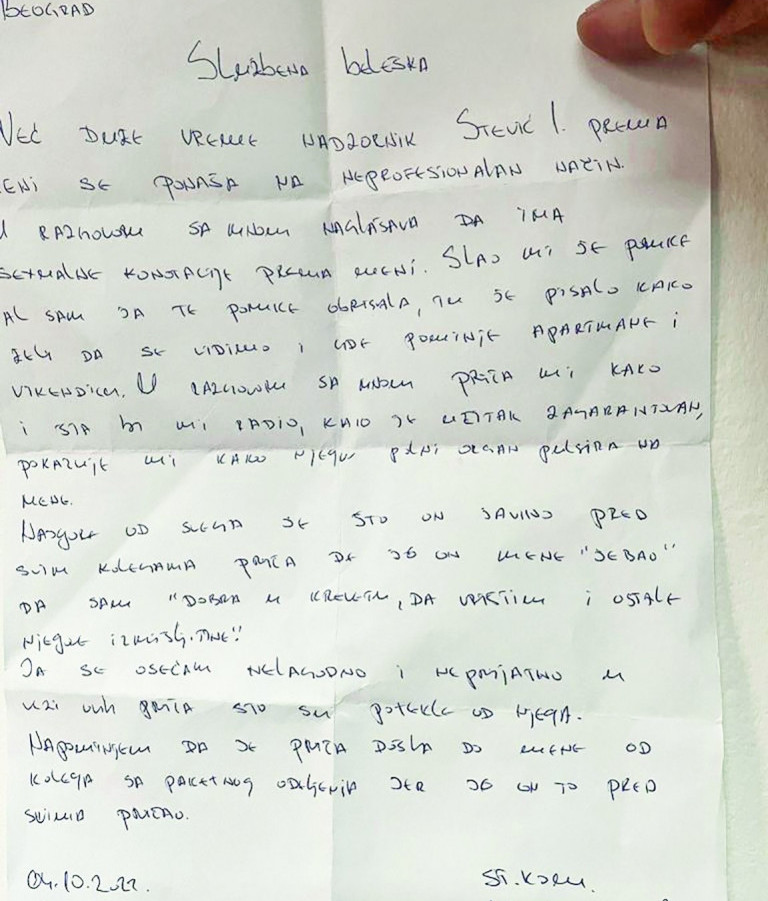 BEOGRAD
Službena beleška
VEĆ DUŽE VREME NADZORNIK STEVIĆ I. PREMA
ENI SE PONAŠA NA NEPROFESIONALAN NAČIN.
U RAZGOVORU SA MNOM NAGLAŠAVA DA IMA
SEXUALNE KONOTACIJE PREMA MENI. SLAO MI JE PORUKE
AL SAM JA TE PORUKE OBRISALA, TU JE PISALO KAKO
ŽELI DA SE VIDIMO I GDE POMINJE APARTMANE I
VIKENDICU. U RAZGOVORU SA MNOM PRIČA MI KAKO
I ŠTA BI MI RADIO, KAKO JE UŽITAK ZAGARANTOVAN,
POKAZUJE MI KAKO NJEGOV POLNI ORGAN PULSIRA NA
MENE.
NAJGORE OD SVEGA JE ŠTO ON JAVNO PRED
SVIM KOLEGAMA PRIČA DA JE ON MENE "JEBAO"
DA SAM "DOBRA U KREVETU, DA VRIŠTIM I OSTALE
NJEGOVE IZMIŠLJOTINE"
JA SE OSEĆAM NELAGODNO I NEPRIJATNO U
VEZI OVIH PRIČA ŠTO SU POTEKLE OD NJEGA.
NAPOMINJEM DA JE PRIČA DOŠLA DO MENE OD
KOLEGA SA PAKETNOG ODELJENJA JER JE ON TO PRED
SVIMA PRIČAO.
04.10.2022.